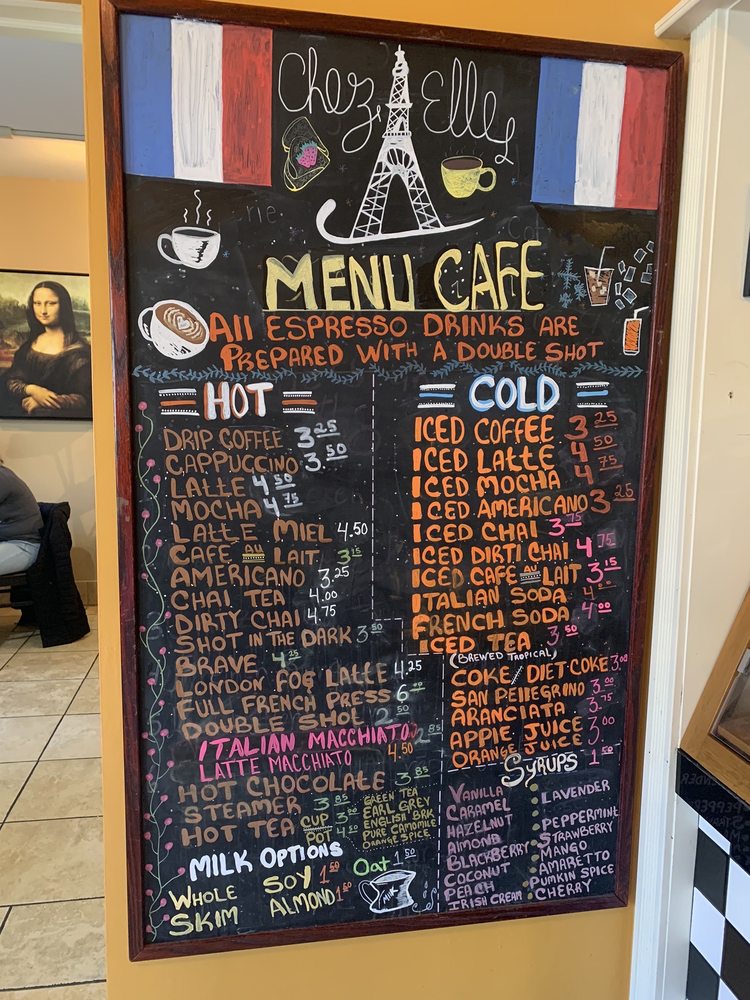 Chez Elle
MENU CAFE
All ESPRESSO DRINKS ARE
PREPARED WITH A DOUBLE SHOT
HOT
DRIP COFFEE 3.25
CAPPUCCINO 3.50
LATTE 4.50
MOCHA 4.75
LATTE MIEL 4.50
CAFE AU LAIT 3.15
AMERICANO 3.25
CHAI TEA 4.00
DIRTY CHAI 4.75
SHOT IN THE DARK 3.50
BRAVE 4.25
LONDON FOG LATTE 4.25
FULL FRENCH PRESS 6.00
DOUBLE SHOT 2.50
ITALIAN MACCHIATO 2.85
LATTE MACCHIATO 4.50
HOT CHOCOLATE 3.85
STEAMER 3.85
HOT TEA CUP 3.00
POT 4.50
GREEN TEA
EARL GREY
ENGLISH BRK
PURE CAMOMILE
ORANGE SPICE
MILK OPTIONS
WHOLE
SKIM
SOY 1.50
ALMOND 1.50
Oat 1.50
MILK
COLD
ICED COFFEE 3.25
ICED LATTE 4.50
ICED MOCHA 4.75
ICED AMERICANO 3.25
ICED CHAI 3.75
ICED DIRTI CHAI 4.75
ICED CAFE AU LAIT 3.15
ITALIAN SODA 4.00
FRENCH SODA 4.00
ICED TEA 3.50
(BREWED TROPICAL)
COKE/DIET COKE 3.00
SAN PELLEGRINO 3.00
ARANCIATA 3.75
APPIE JUICE 3.00
ORANGE JUICE
SYRUPS 1.50
VANILLA
CARAMEL
HAZELNUT
ALMOND
BLACKBERRY
COCONUT
PEACH
IRISH CREAM
LAVENDER
PEPPERMINT
STRAWBERRY
MANGO
AMARETTO
PUMKIN SPICE
CHERRY